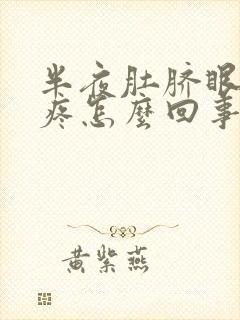 半夜肚脐眼
疼怎麽回事
黄紫燕